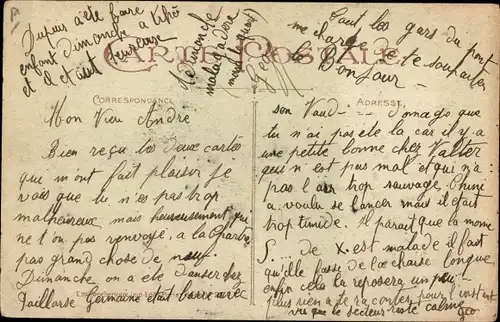 CARTE POSTALE
CORRESPONDANCE
ADRESSE
Mon Vieu André
Bien reçu tes deux cartes
qui m'ont fait plaisir je
vois que tu n'es pas trop
malheureux mais heureusement qu'on
ne t'on pas renvoyé à la Chartre
pas grand chose de neuf.
Dimanche on a été danser chez
Taillarse Germaine etait barré avec
son Vaud- Domage que
tu n'ai pas été la car il y a
une petite bonne chez Valter
qui n'est pas mal et qui n'a
pas l'air trop sauvage
a voulu se lancer mais il etait
trop timide. Il parait que la mome
S... de X. est malade il faut
qu'elle fasse de la chaise longue
enfin cela la reposera un peu
plus rien à te raconter pour l'instant
vu que le secteur est calme
Geo
Tout les gars du pont
me charge de te souhaiter
le Bonjour
Dimanche
enfant
et il etait
malade
Geo